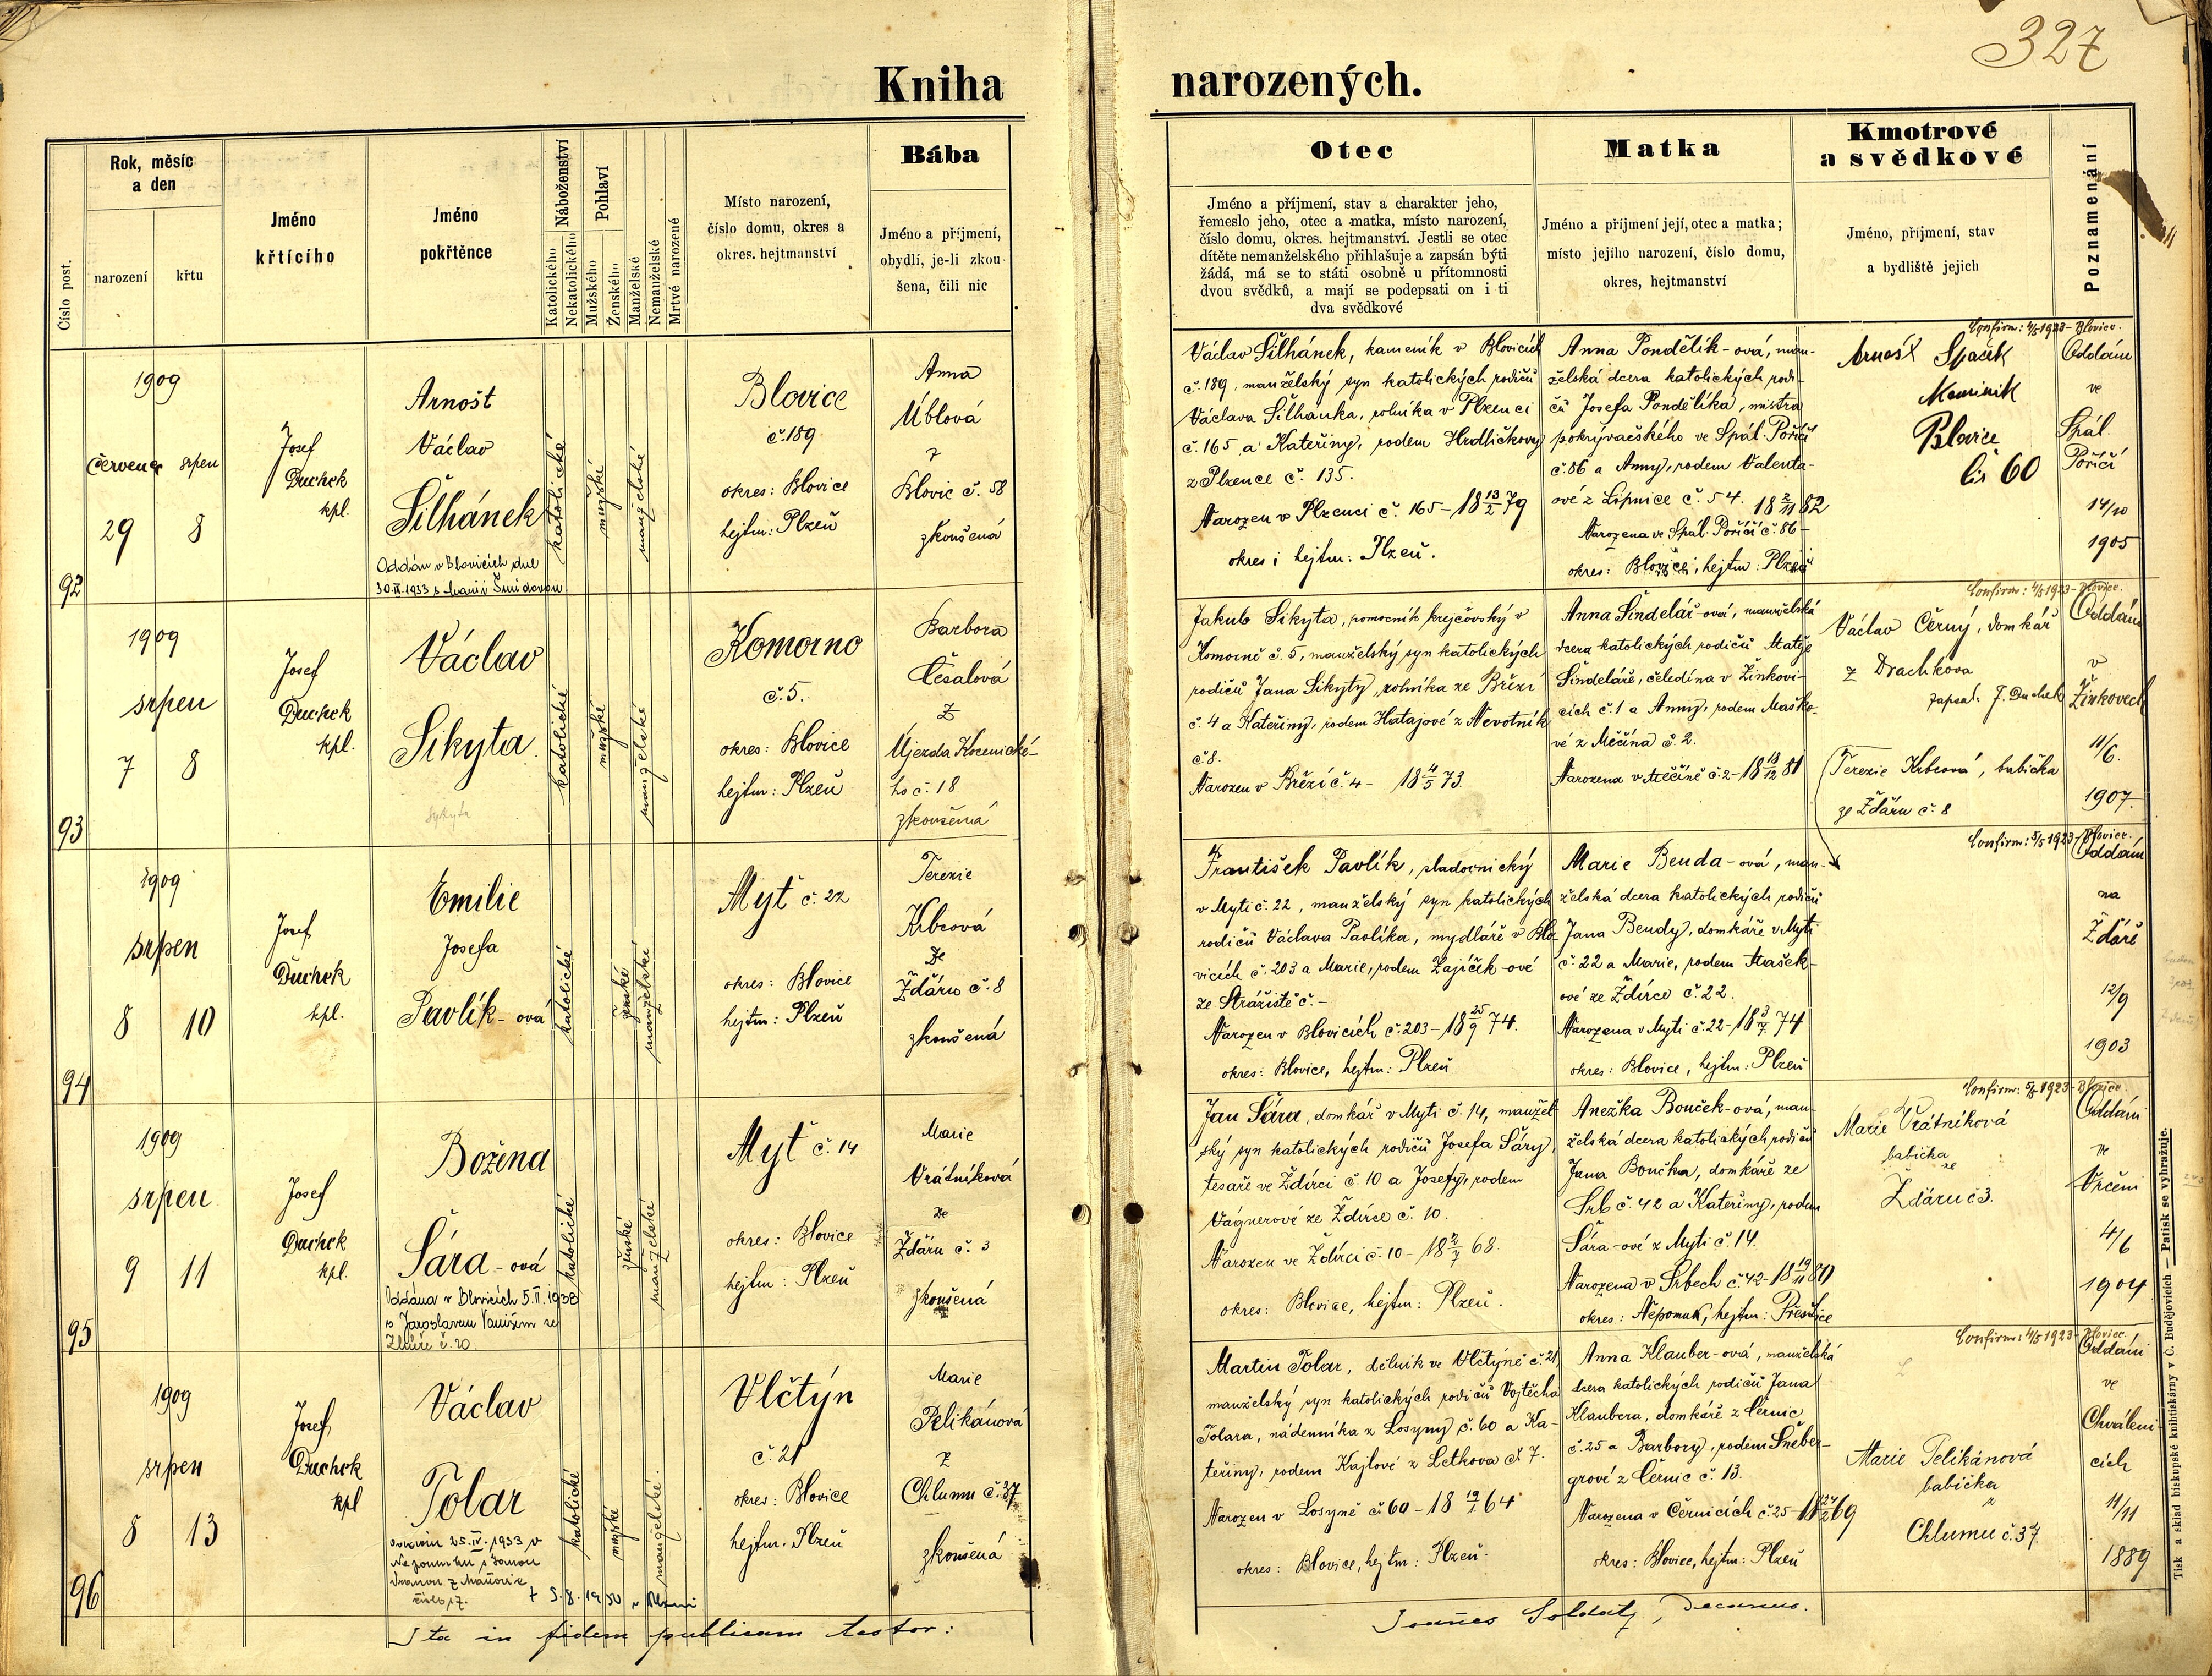 327
Kniha narozených.
Číslo post.
Rok, měsíc
a den
narození
křtu
Jméno
křtícího
Jméno
pokřtěnce
Náboženství
Katolického
Nekatolického
Pohlaví
Mužského
Ženského
Manželské
Nemanželské
Mrtvé narozené
Místo narození,
číslo domu, okres a
okres. hejtmanství
Bába
Jméno a příjmení,
obydlí, je-li zkou-
šena, čili nic
Otec
Jméno a příjmení, stav a charakter jeho,
řemeslo jeho, otec a matka, místo narození,
číslo domu, okres. hejtmanství. Jestli se otec
dítěte nemanželského přihlašuje a zapsán býti
žádá, má se to státi osobně u přítomnosti
dvou svědků, a mají se podepsati on i ti
dva svědkové
Matka
Jméno a příjmení její, otec a matka;
místo jejího narození, číslo domu,
okres, hejtmanství
Kmotrové
a svědkové
Jméno, příjmení, stav
a bydliště jejich
Poznamenání
92
1909
červenec srpen
29 8
Josef
Duchek
kpl.
Arnošt
Václav
Šilhánek
Oddán v Blovicích dne
30.IX.1933 s Marií Šmídovou
katolické
mužské
manželské
Blovice
č. 189
okres: Blovice
hejtm: Plzeň
Anna
Úblová
z
Blovic č. 58
zkoušená
Václav Šilhánek, kameník v Blovicích
č. 189, manželský syn katolických rodičů
Václava Šilhánka, rolníka v Plzenci
č. 165 a Kateřiny, rodem Hrdličkovy
z Plzence č. 135.
Narozen v Plzenci č. 165 - 18 13/2 79
okres i hejtm: Plzeň.
Anna Pondělík-ová, man-
želská dcera katolických rodi-
čů Josefa Pondělíka, mistra
pokrývačského ve Spál. Poříčí
č. 86 a Anny, rodem Valenta-
ové z Lipnice č. 54. 18 2/11 82
Narozena ve Spál. Poříčí č. 86 -
okres: Blovice, hejtm: Plzeň
Confirm: 4/5 1923 - Blovice.
Arnošt Spaček
Kominik
Blovice
čis 60
Oddáni
ve
Spál.
Poříčí
14/10
1905
93
1909
srpen
7 8
Josef
Duchek
kpl.
Václav
Sikyta
Sykyta
katolické
mužské
manželské
Komorno
č. 5.
okres: Blovice
hejtm: Plzeň
Barbora
Česalová
z
Újezda Kocenické-
ho č. 18
zkoušená
Jakub Sikyta, pomocník krejčovský v
Komorně č. 5, manželský syn katolických
rodičů Jana Sikyty, rolníka ze Březí
č. 4 a Kateřiny, rodem Hatajové z Nevotník
č. 8.
Narozen v Březí č. 4 - 18 4/5 73.
Anna Šindelář-ová, manželská
dcera katolických rodičů Matěje
Šindeláře, čeledína v Žinkovi-
cích č. 1 a Anny, rodem Maško-
vé z Měčína č. 2.
Narozena v Měčíně č. 2 - 18 18/12 81
Confirm: 4/5 1923 - Blovice.
Václav Černý, domkář
z Drachkova
zapsal J. Duchek
Oddáni
v
Žinkovech
11/6.
1907
94
1909
srpen
8 10
Josef
Duchek
kpl.
Emilie
Josefa
Pavlík-ová
katolické
ženské
manželské
Myť č. 22
okres: Blovice
hejtm: Plzeň
Terezie
Krbcová
ze
Ždáru č. 8
zkoušená
František Pavlík, sladovnický
v Myti č. 22, manželský syn katolických
rodičů Václava Pavlíka, mydláře v Blo-
vicích č. 203 a Marie, rodem Zajíček-ové
ze Strážiště č. -
Narozen v Blovicích č. 203 - 18 25/9 74.
okres: Blovice, hejtm: Plzeň
Marie Benda-ová, man-
želská dcera katolických rodičů
Jana Bendy, domkáře v Myti
č. 22 a Marie, rodem Mašek-
ové ze Zdírce č. 22.
Narozena v Myti č. 22 - 18 3/7 74
okres: Blovice, hejtm: Plzeň
Terezie Krbcová, babička
ze Ždáru č. 8
Confirm: 5/5 1923 - Blovice.
Oddáni
na
Ždáře
12/9
1903
95
1909
srpen
9 11
Josef
Duchek
kpl.
Božena
Šára-ová
Oddána v Blovicích 5.II.1938
s Jaroslavem Vaníšem ze
č. 20.
katolické
ženské
manželské
Myť č. 14
okres: Blovice
hejtm: Plzeň
Marie
Vrátníková
ze
Ždáru č. 3
zkoušená
Jan Šára, domkář v Myti č. 14, manžel-
ský syn katolických rodičů Josefa Šáry,
tesaře ve Ždírci č. 10 a Josefy, rodem
Vágnerové ze Ždírce č. 10.
Narozen ve Ždírci č. 10 - 18 2/7 68.
okres: Blovice, hejtm: Plzeň.
Anežka Bouček-ová, man-
želská dcera katolických rodičů
Jana Boučka, domkáře ze
Srb č. 42 a Kateřiny, rodem
Šára-ové z Myti č. 14.
Narozena v Srbech č. 42 - 18 19/11 80
okres: Nepomuk, hejtm: Přeštice
Confirm: 5/5 1923 - Blovice.
Marie Vrátníková
babička
ze
Ždáru č 3.
Oddáni
ve
Vrčeni
4/6
1904
96
1909
srpen
8 13
Josef
Duchek
kpl
Václav
Tolar
25.IV.1933 v
Nepomuku s Janou
číslo 17.
katolické
mužské
manželské.
Vlčtýn
č. 21
okres: Blovice
hejtm. Plzeň
Marie
Pelikánová
z
Chlumu č. 37
zkoušená
Martin Tolar, dělník ve Vlčtýně č. 21,
manželský syn katolických rodičů Vojtěcha
Tolara, nádenníka z Losyny č. 60 a Ka-
teřiny, rodem Kajlové z Letkova č. 7.
Narozen v Losyně č. 60 - 18 19/1 64
okres: Blovice, hejtm: Plzeň.
Anna Klauber-ová, manželská
dcera katolických rodičů Jana
Klaubera, domkáře z Černic
č. 25 a Barbory, rodem Šneber-
grové z Černic č. 13.
Narozena v Černicích č. 25 - 18 24/2 69
okres: Blovice, hejtm: Plzeň
Confirm: 4/5 1923 - Blovice.
Marie Pelikánová
babička
z
Chlumu č. 37
Oddáni
ve
Chváleni-
cích
11/11
1889
Ita in fidem publicam testor:
Joannes Soldat, Decanus.
Tisk a sklad biskupské knihtiskárny v Č. Budějovicích — Patisk se vyhražuje.